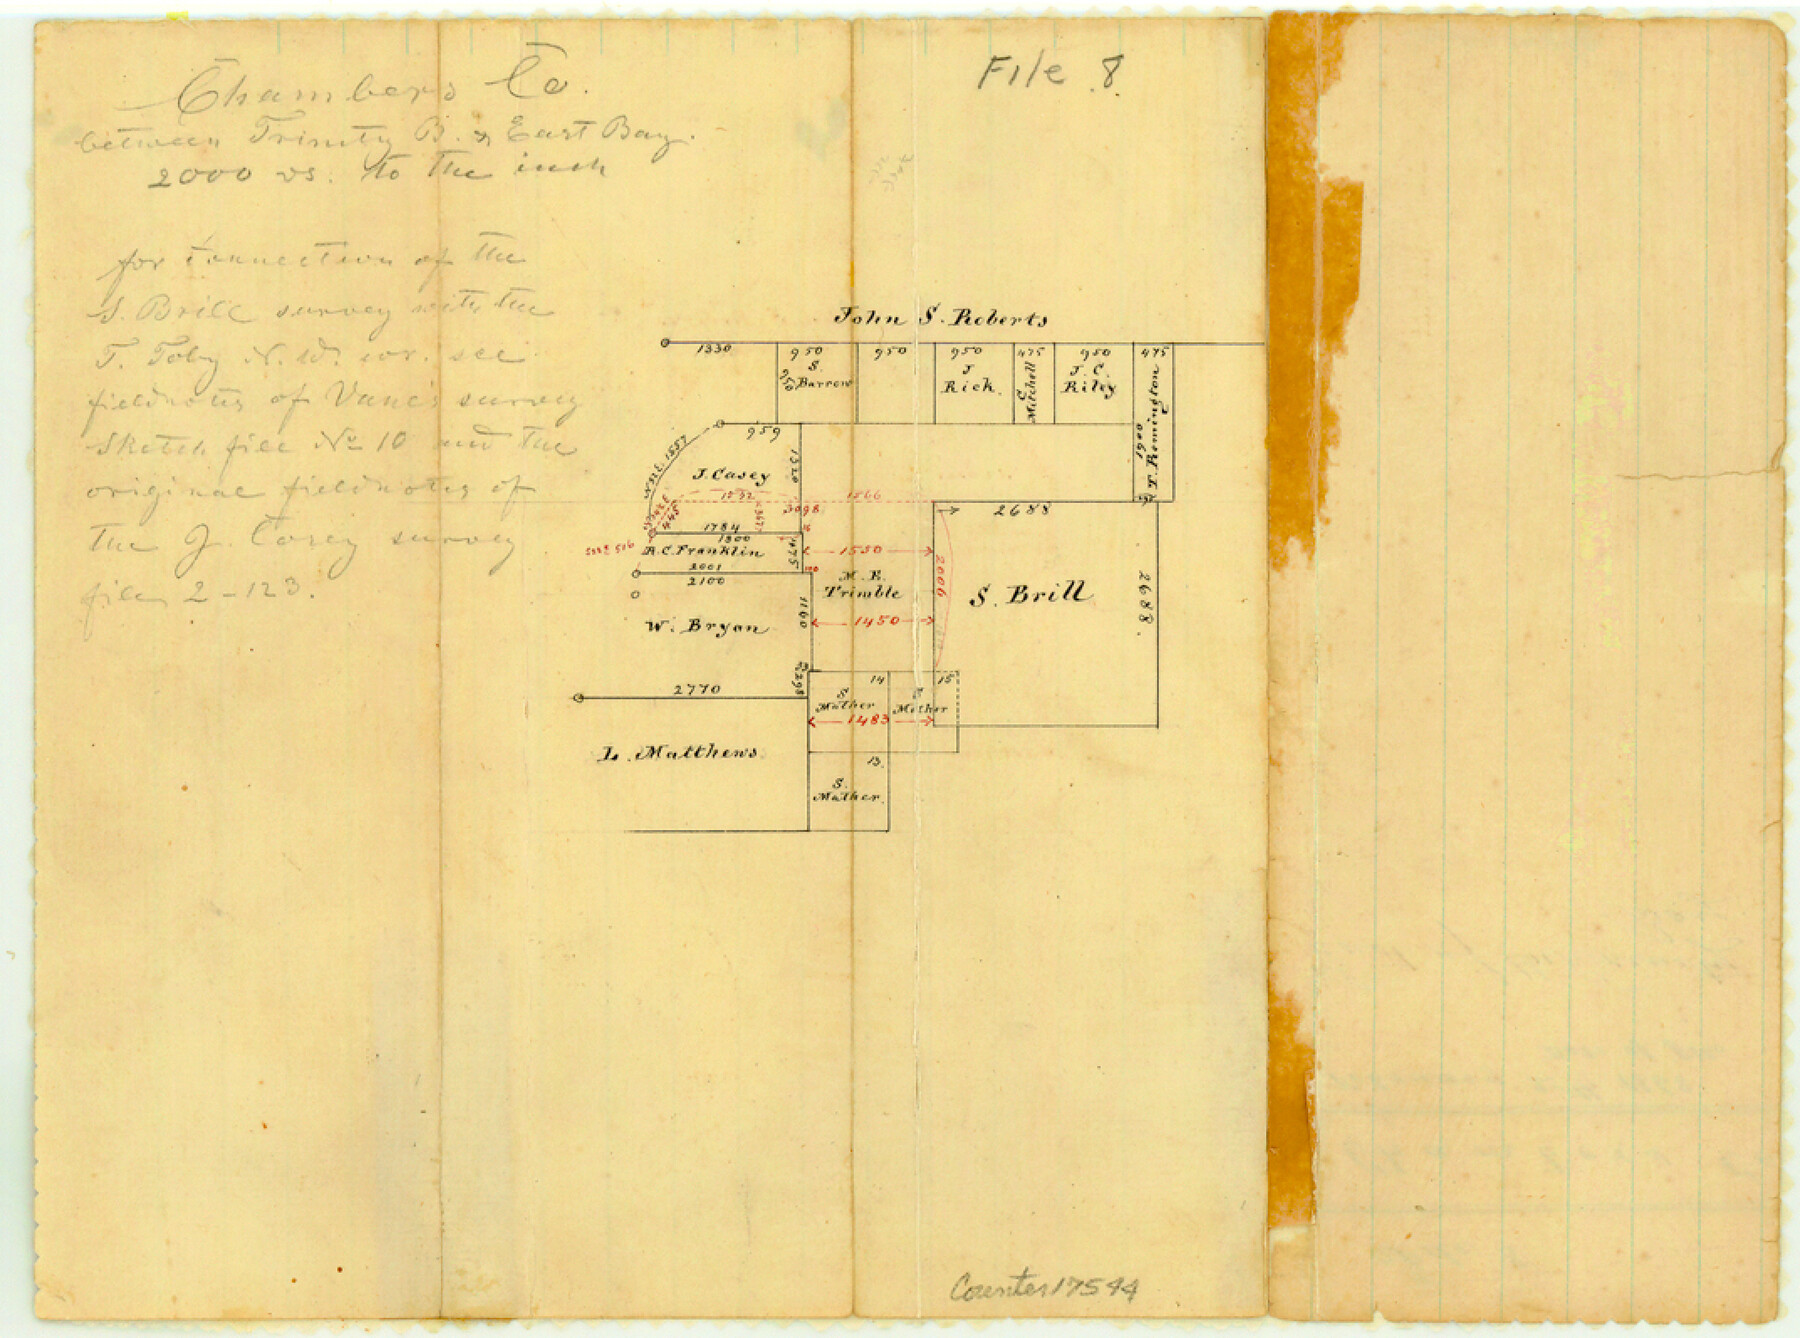 Chambers Co.
between Trinity B. & East Bay.
2000 vs. to the inch
File 8.
for connection of the
S. Brill survey with the
T. Toby N.W. cor. see
fieldnotes of Vane's survey
Sketch file No 10 and the
original fieldnotes of
the J. Casey survey
file 2-123.
John S. Roberts
1330
950
950
950
475
950
475
S. Barrow
950
J Rick.
C Mitchell
J. C. Riley
T. Remington
1900
959
1557
J. Casey
1320
1532
1566
3098
445
367
1784
1300
16
A. C. Franklin
475
1550
S 32 E 506
2001
2100
100
M. E. Trimble
2688
S. Brill
2006
2688.
W. Bryan
1160
1450
2770
298
14
15
S. Mather
S Mather
1483
L. Matthews.
13.
S. Mather.
Counter 17544